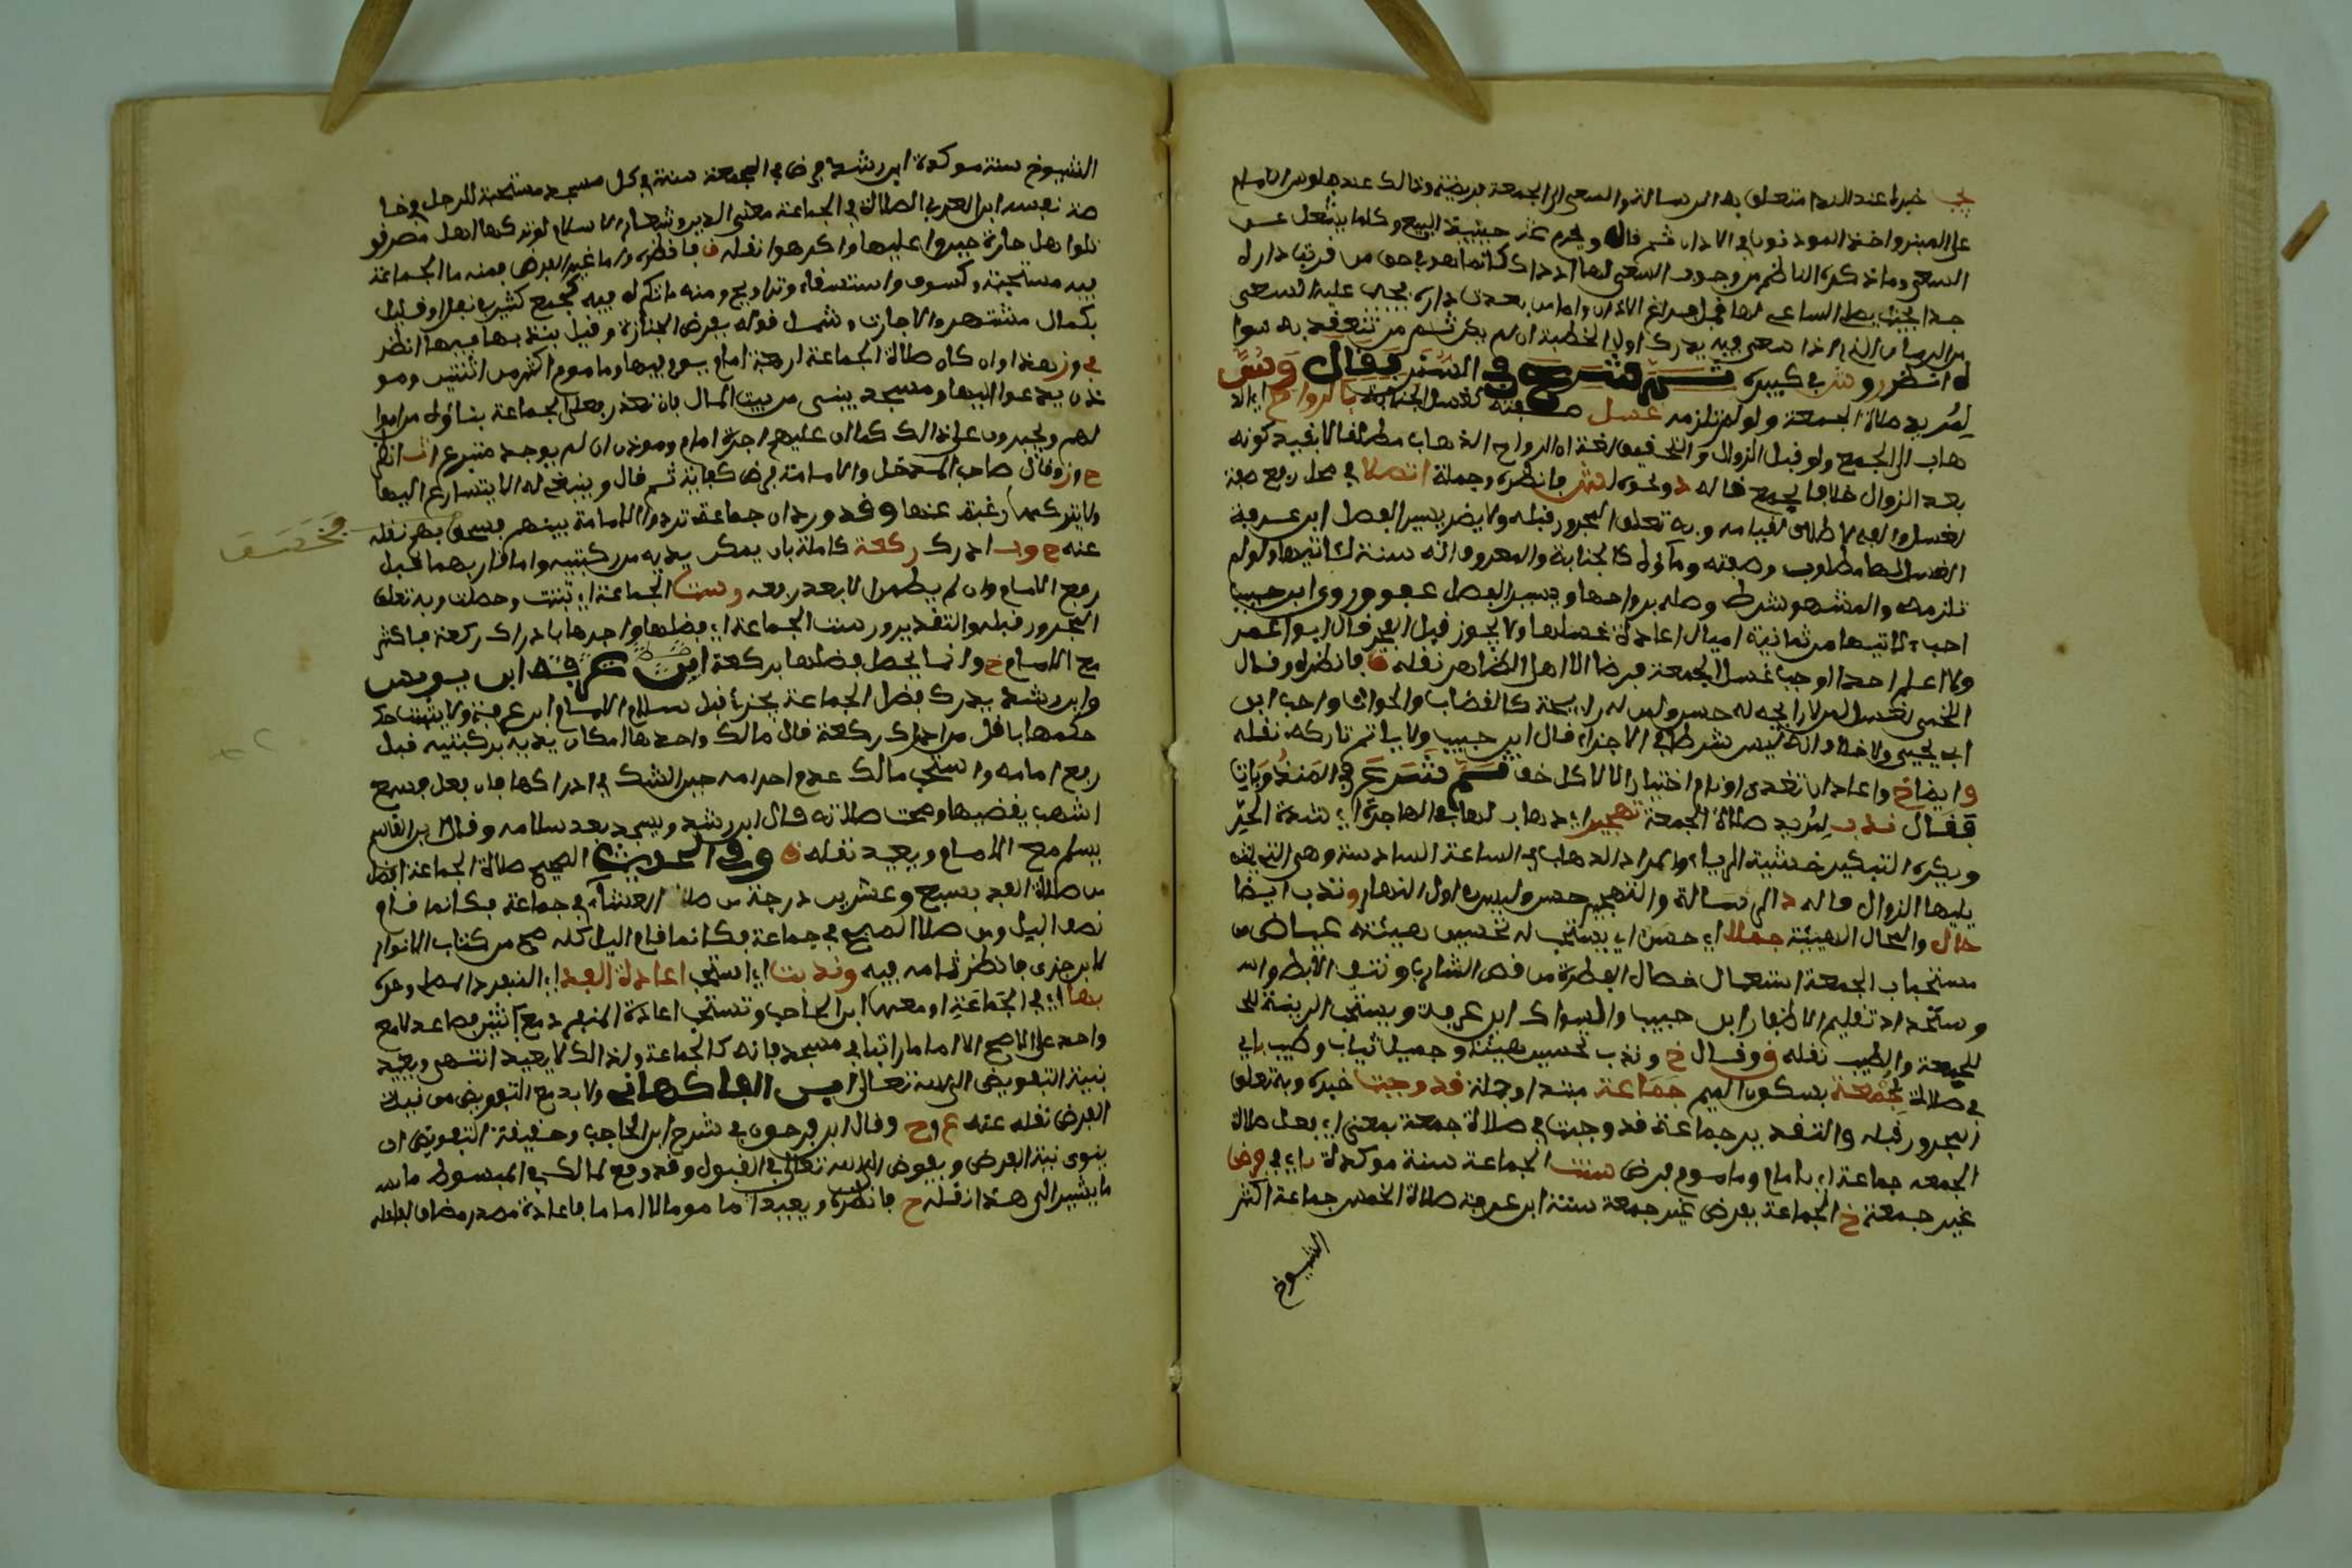 يجب خبره عند الندا متعلق به الرسالة والسعي الى الجمعة فريضة وذالك عند جلوس الامام
على المنبر واخذ الموذنون في الاذان ثم قال ويحرم حينئذ البيع وكلما يشغل عن
السعي وما ذكره الناظم من وجوب السعي لها اذ ذاك انما هو في حق من قربت داره
جدا يجب على الساعي لها قبل فراغ الاذان واما من بعدت داره يجب عليه السعي
من الزمان الذي اذا سعى فيه يدرك اول الخطبة ان لم يكن ثم من تنعقد به سوا
انظر وش في كبيره ثم شرع في السنن فقال وسن
لمريد صلاة الجمعة ولو لم تلزمه غسل صفته كغسل الجنابة بالرواح اي الذ
هاب الى الجمع ولو قبل الزوال والتحقيق لغة ان الرواح الذهاب مطلقا لا بقيد كونه
بعد الزوال خلافا لجمع قاله د ونحوه لتش فانظره وجملة اتصلا في محل رفع صفة
لغسل والفه لاطلاق القيامه وبه تعلق المجرور قبله ولا يضر يسير الفصل ابن عرفة
الغسل لها مطلوب وصفته وماؤه كالجنابة والمعروف انه سنة لاتيها ولو لم
تلزمه والمشهور شرط وصله برواحها ويسير الفصل عفو وروى ابن حبيب
احب لاتيها من ثمانية اميال اعادة غسلها ولا يجوز قبل الفجر قال ابو عمر
ولا اعلم احدا اوجب غسل الجمعة فرضا الا اهل الظاهر نقله ق فانظره وقال
اللخمي لغسل لمن لا رايحة له حسن ولمن له رايحة كالقصاب والحوات واجب ابن
ابي يحيى ولا خلاف انه ليس شرطا في الاجزاء قال ابن حبيب ولا ياثم تاركه نقله
ق ايضا خ واعاد ان تغدى او نام اختيارا لا لاكل خف ثم شرع في المندوبات
فقال ندب لمريد صلاة الجمعة تهجير اي ذهاب لها في الهاجرة اي شدة الحر
ويكره التبكير خشية الريا والمراد الذهاب في الساعة السادسة وهي التي
يليها الزوال قاله د الرسالة والتهجير حسن وليس اول النهار وندب ايضا
حال والحال الهيئة جملا اي حسن اي يستحب له تحسين هيئته عياض من
مستحباب الجمعة استعمال خصال الفطرة من قص الشارب ونتف الابط والا
وستحداد تقليم الاظفار ابن حبيب والسواك ابن عرفة ويستحب الزينة لل
للجمعة والطيب نقله ق وقال خ وندب تحسين هيئة وجميل ثياب وطيب
في صلاة بجمعة بسكون الميم جماعة مبتدا وجملة قد وجبت خبره وبه تعلق
المجرور قبله والتقدير جماعة قد وجبت في صلاة جمعة بمعنى اي فعل صلاة
الجمعه جماعة اي بامام وماموم فرض سنت الجماعة سنة موكدة باي في فرض
غير جمعة خ الجماعة بفرض غير جمعة سنة ابن عرفة صلاة الخمس جماعة اكثر
الشيوخ
الشيوخ سنة موكدة ابن رشد فرض في الجمعة سنة في كل مسجد مستحبة للرجل في خا
صة نفسه ابن العربي الصلاة في الجماعة معنى الدين وشعار الاسلام لو تركها اهل مصر قو
تلوا واهل حارة جبروا عليها واكرهوا نقله ق فانظره واما غير الفرض فمنه ما الجماعة
فيه مستحبة وكسوف واستسقاء وتراويح ومنه ما تكره فيه كجمع كثير في نفل او قليل
بكمال مشتهر والا جازت وشمل قوله بفرض الجنازة وقيل بندبها فيها انظر
خش وز هذا وان كان صلاة الجماعة اربعة امام يوم فيها وماموم اكثر من اثنين ومو
ذن يدعوا اليها ومسجد يبنى من بيت المال فان تعذر فعلى الجماعة بناؤه من اموا
لهم ويجبرون على ذالك كما ان عليهم اجرة امام وموذن ان لم يوجد متبرع انظر
ح وز وقال صاحب المدخل والامامة فرض كفاية ثم قال وينبغي له الا يتسارع اليها
ولا يتركها رغبة عنها وقد ورد ان جماعة تردوا الامامة بينهم فخسف بهم نقله
فخسف
عنه ح وز ادرك ركعة كاملة بان يمكن يديه من ركبتيه او ما قاربهما قبل
رفع الامام وان لم يطمئن الا بعد رفعه وسنت الجماعة اي ثبتت وحصلت وبه تعلق
المجرور قبله والتقدير وسنت الجماعة اي فضلها واجرها بادراك ركعة فاكثر
مع الامام خ وانما يحصل فضلها بركعة ابن عرفة ابن يونس
وابن رشد يدرك فضل الجماعة بجزء قبل سلام الامام ابن عرفة ولا يثبت حكـ
حكمها باقل من ادراك ركعة قال مالك واحدها امكان يديه بركبتيه قبل
رفع امامه واستحب مالك عدم احرامه حين الشك في ادراكها فان فعل فسمع
اشهب يقضيها وصحت صلاته قال ابن رشد ويسجد بعد سلامه وقال ابن القاسم
يسلم مع الامام ويعيد نقله ق وفي الحديث الصحيح صلاة الجماعة افضل
من صلاة الفذ بسبع وعشرين درجة من صلا العشاء في جماعة فكانما قام
نصف اليل ومن صلا الصبح في جماعة فكانما قام اليل كله صح من كتاب الانوار
لابن جزي فانظر تمامه فيه وندبت اي استحب اعادة الفذ اي المنفرد
بها اي في الجماعة او معها ابن الحاجب وتستحب اعادة المنفرد مع اثنين فصاعدا لا مع
واحد على الاصح الا اماما راتبا في مسجد فانه كالجماعة ولذالك لا يعيد انتهى ويعيد
بنية التفويض الى الله تعالى ابن الفاكهاني ولا بد مع التفويض من نية
الفرض نقله عنه غ وح وقال ابن فرحون في شرح ابن الحاجب وحقيقة التفويض ان
ينوى نية الفرض ويفوض الى الله تعالى في القبول وقد وقع لمالك في المبسوط ما
ما يشير الى هذا نقله ح فانظره ويعيد ماموما لا اماما فاعادة مصدر مضاف لفاعله